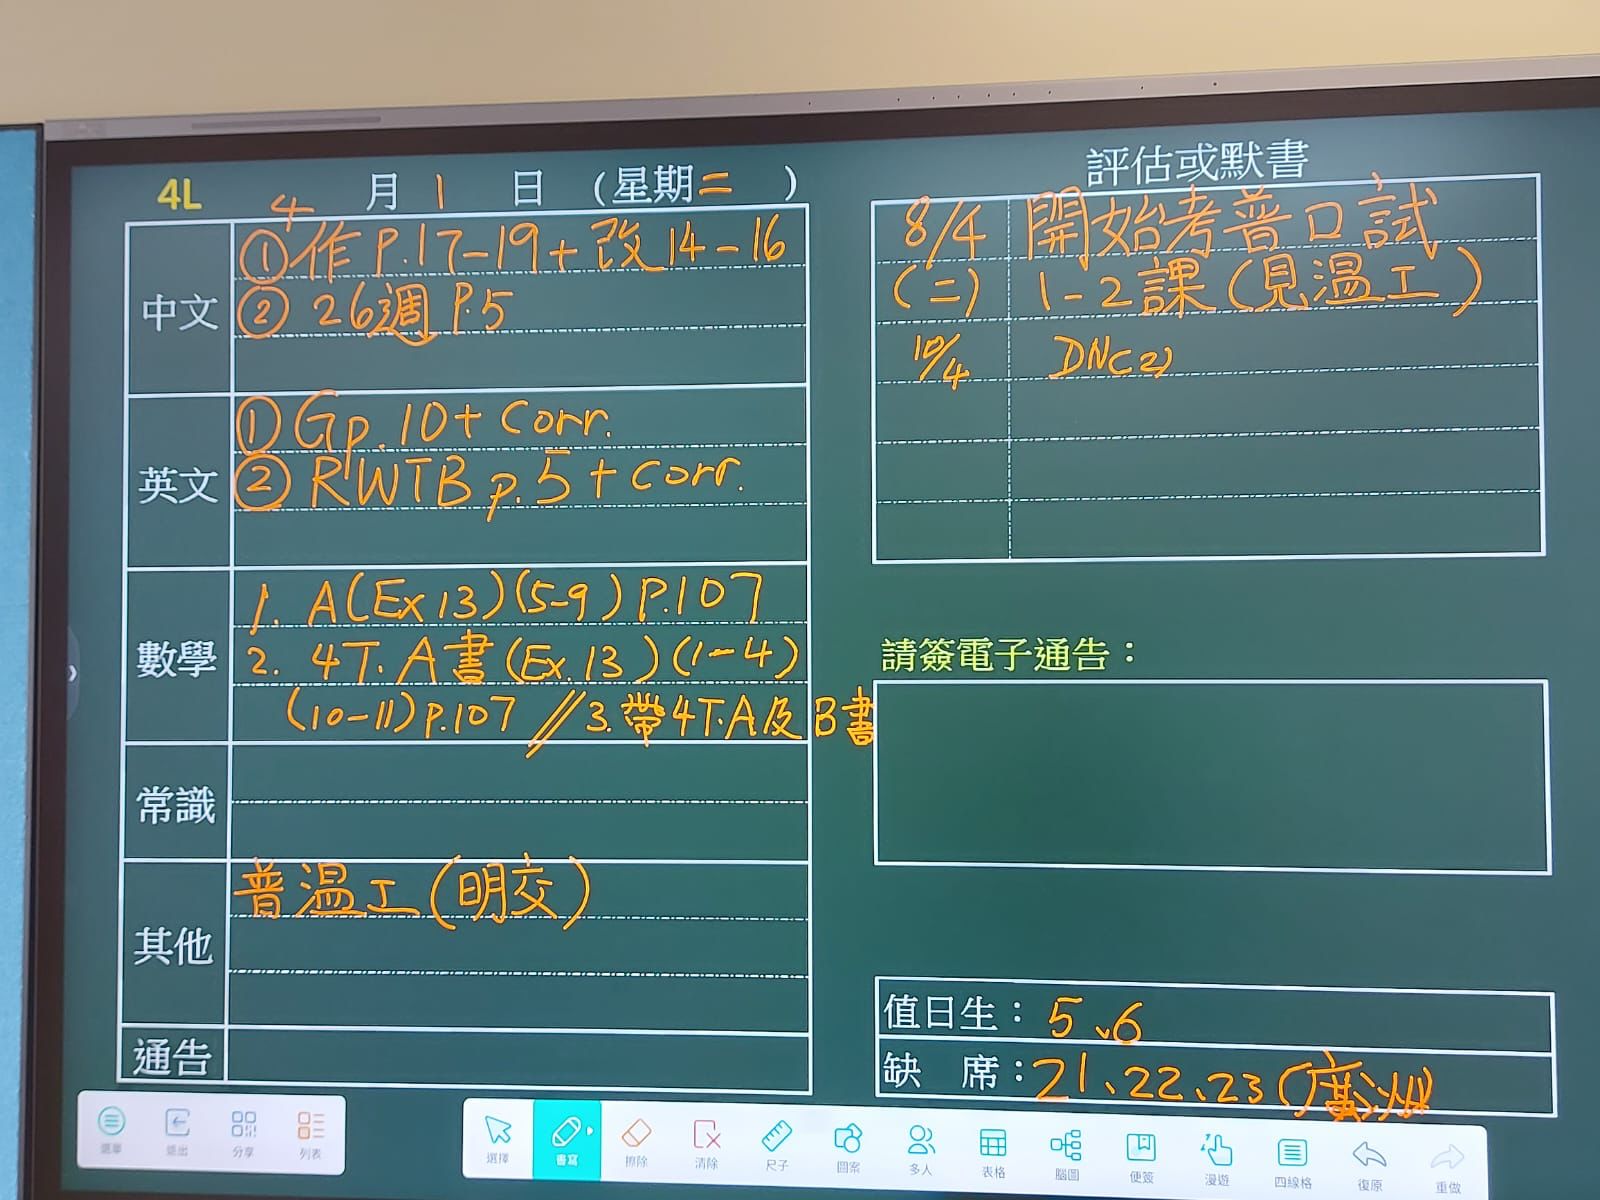 4L 4月1日(星期二)
中文
①作P.17-19+改14-16
②26週P.5
英文
①Gp.10+corr.
②RWTB p.5+corr.
數學
1. A(Ex13)(5-9)P.107
2. 4T.A書(Ex.13)(1-4)
(10-11)P.107//3.帶4T.A及B書
常識
其他
普温工(明交)
通告
評估或默書
8/4 開始考普口試
(二) 1-2課(見温工)
10/4 DN(2)
請簽電子通告：
值日生：5、6
缺席：21、22、23(廣州)
選單
退出
分享
列表
選擇
書寫
擦除
清除
尺子
圖案
多人
表格
腦圖
便簽
漫遊
四線格
復原
重做